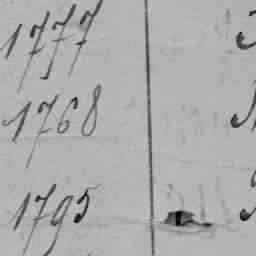 1777
1768
1795